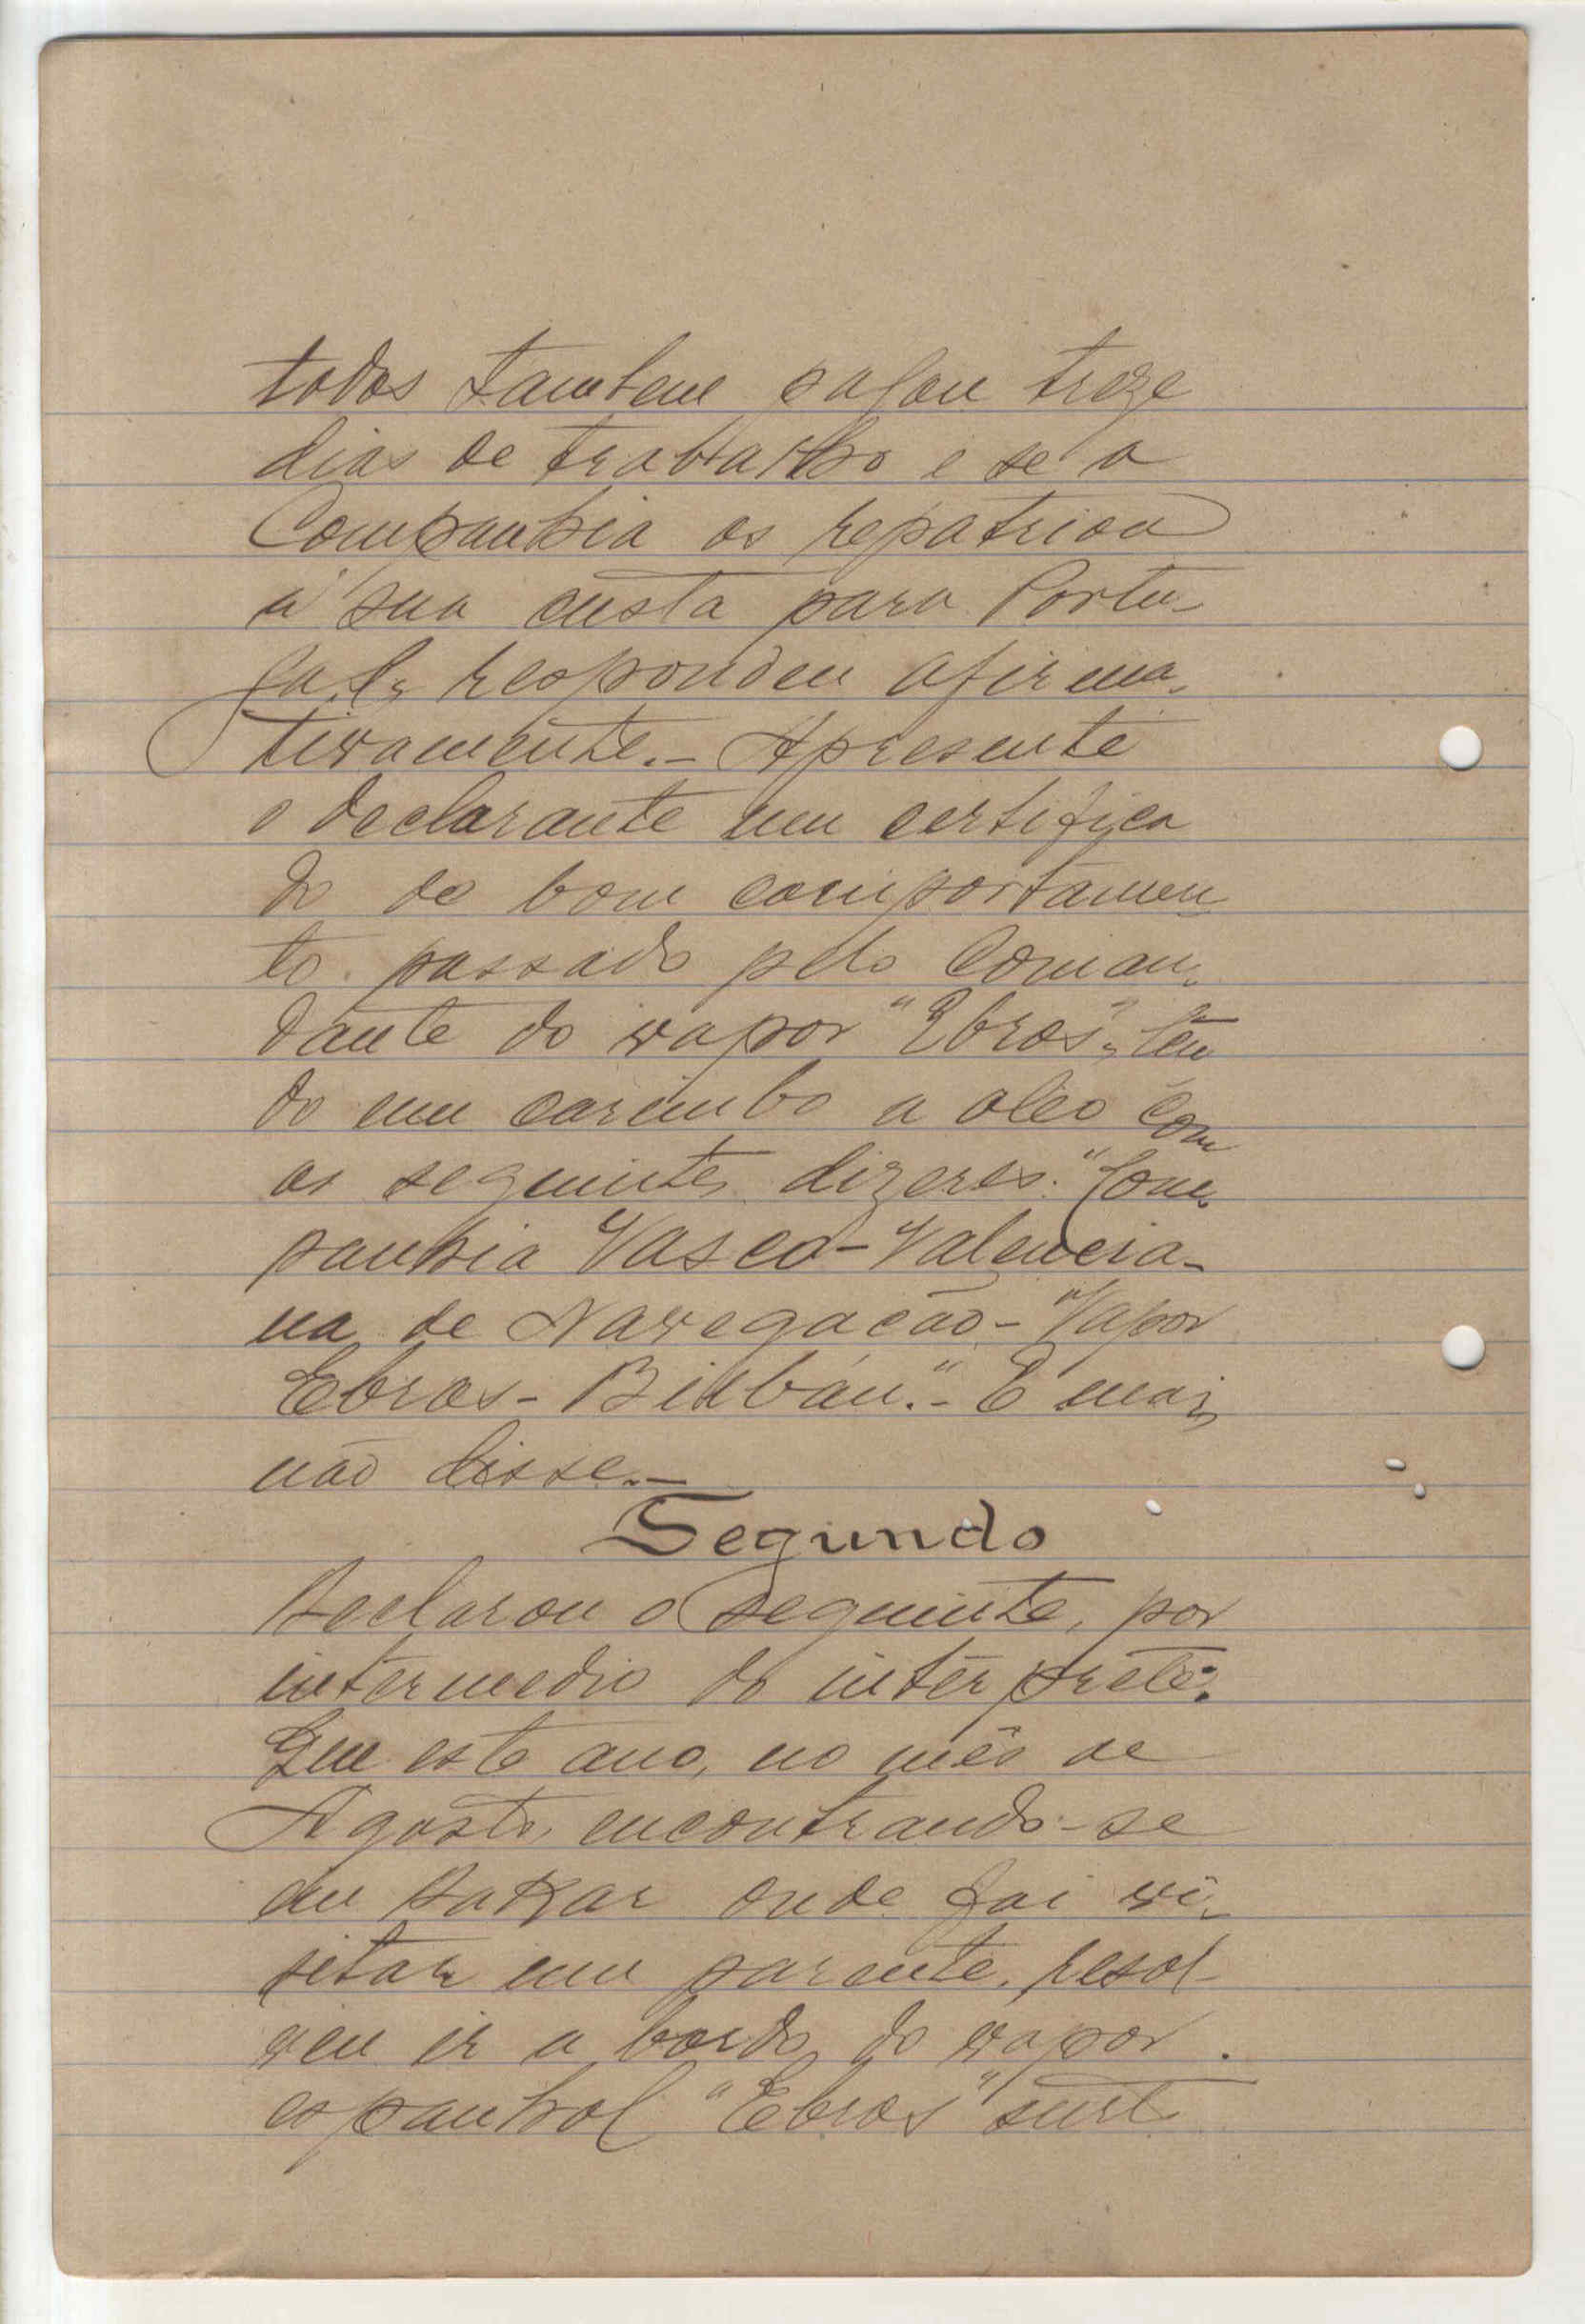 todos tambem pagou treze
dias de trabalho e se a
Companhia os repatriou
á sua custa para Portu-
gal, respondeu afirma-
tivamente.- Apresente
o declarante um certifica
do de bom comportamen-
to passado pelo Coman-
dante do vapor "Ebros", ten
do um carimbo a oleo com
os seguintes dizeres: "Com-
panhia Vasco-Valencia-
na de Navegacão - Vapor
Ebros - Bilbáu."- E mais
não disse.-
Segundo
Declarou o seguinte, por
intermedio do intérprete:
Que este ano, no mês de
Agosto, encontrando-se
em Dakar onde foi vi-
sitar um parente, resol-
veu ir a bordo do vapor
espanhol "Ebros" surt